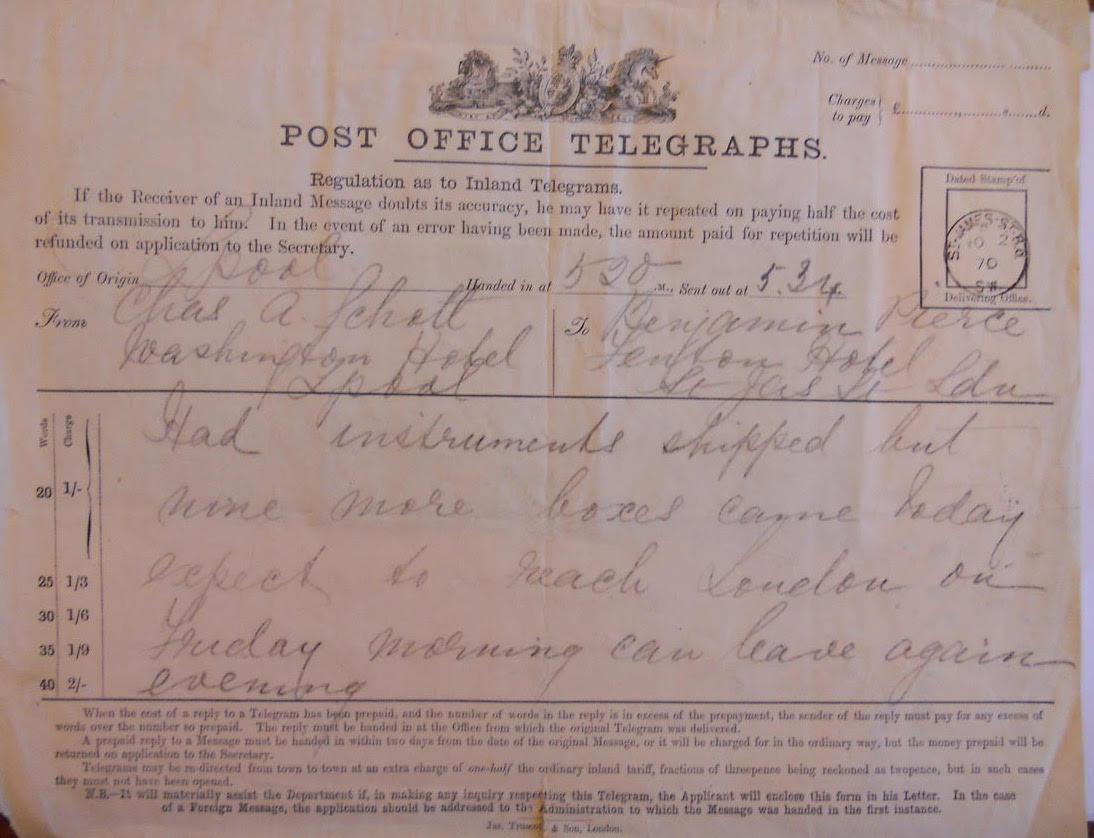 No. of Message
Charges to pay } £ s. d.
POST OFFICE TELEGRAPHS.
Dated Stamp of
ST. JAMES'S ST. B.O
NO 2
70
S.W
Delivering Office.
Regulation as to Inland Telegrams.
If the Receiver of an Inland Message doubts its accuracy, he may have it repeated on paying half the cost
of its transmission to him. In the event of an error having been made, the amount paid for repetition will be
refunded on application to the Secretary.
Office of Origin Lpool Handed in at 520 .M., Sent out at 5.34
From Chas A. Schott To Benjamin Pierce
Washington Hotel Fenton Hotel
Lpool St Jas St Ldn
Words Charge
Had instruments shipped but
20 1/- nine more boxes came today
25 1/3 expect to reach London on
30 1/6
35 1/9 Friday morning can leave again
40 2/- evening
When the cost of a reply to a Telegram has been prepaid, and the number of words in the reply is in excess of the prepayment, the sender of the reply must pay for any excess of
words over the number so prepaid. The reply must be handed in at the Office from which the original Telegram was delivered.
A prepaid reply to a Message must be handed in within two days from the date of the original Message, or it will be charged for in the ordinary way, but the money prepaid will be
returned on application to the Secretary.
Telegrams may be re-directed from town to town at an extra charge of one-half the ordinary inland tariff, fractions of threepence being reckoned as twopence, but in such cases
they must not have been opened.
N.B.—It will materially assist the Department if, in making any inquiry respecting this Telegram, the Applicant will enclose this form in his Letter. In the case
of a Foreign Message, the application should be addressed to the Administration to which the Message was handed in the first instance.
Jas. & Son, London.